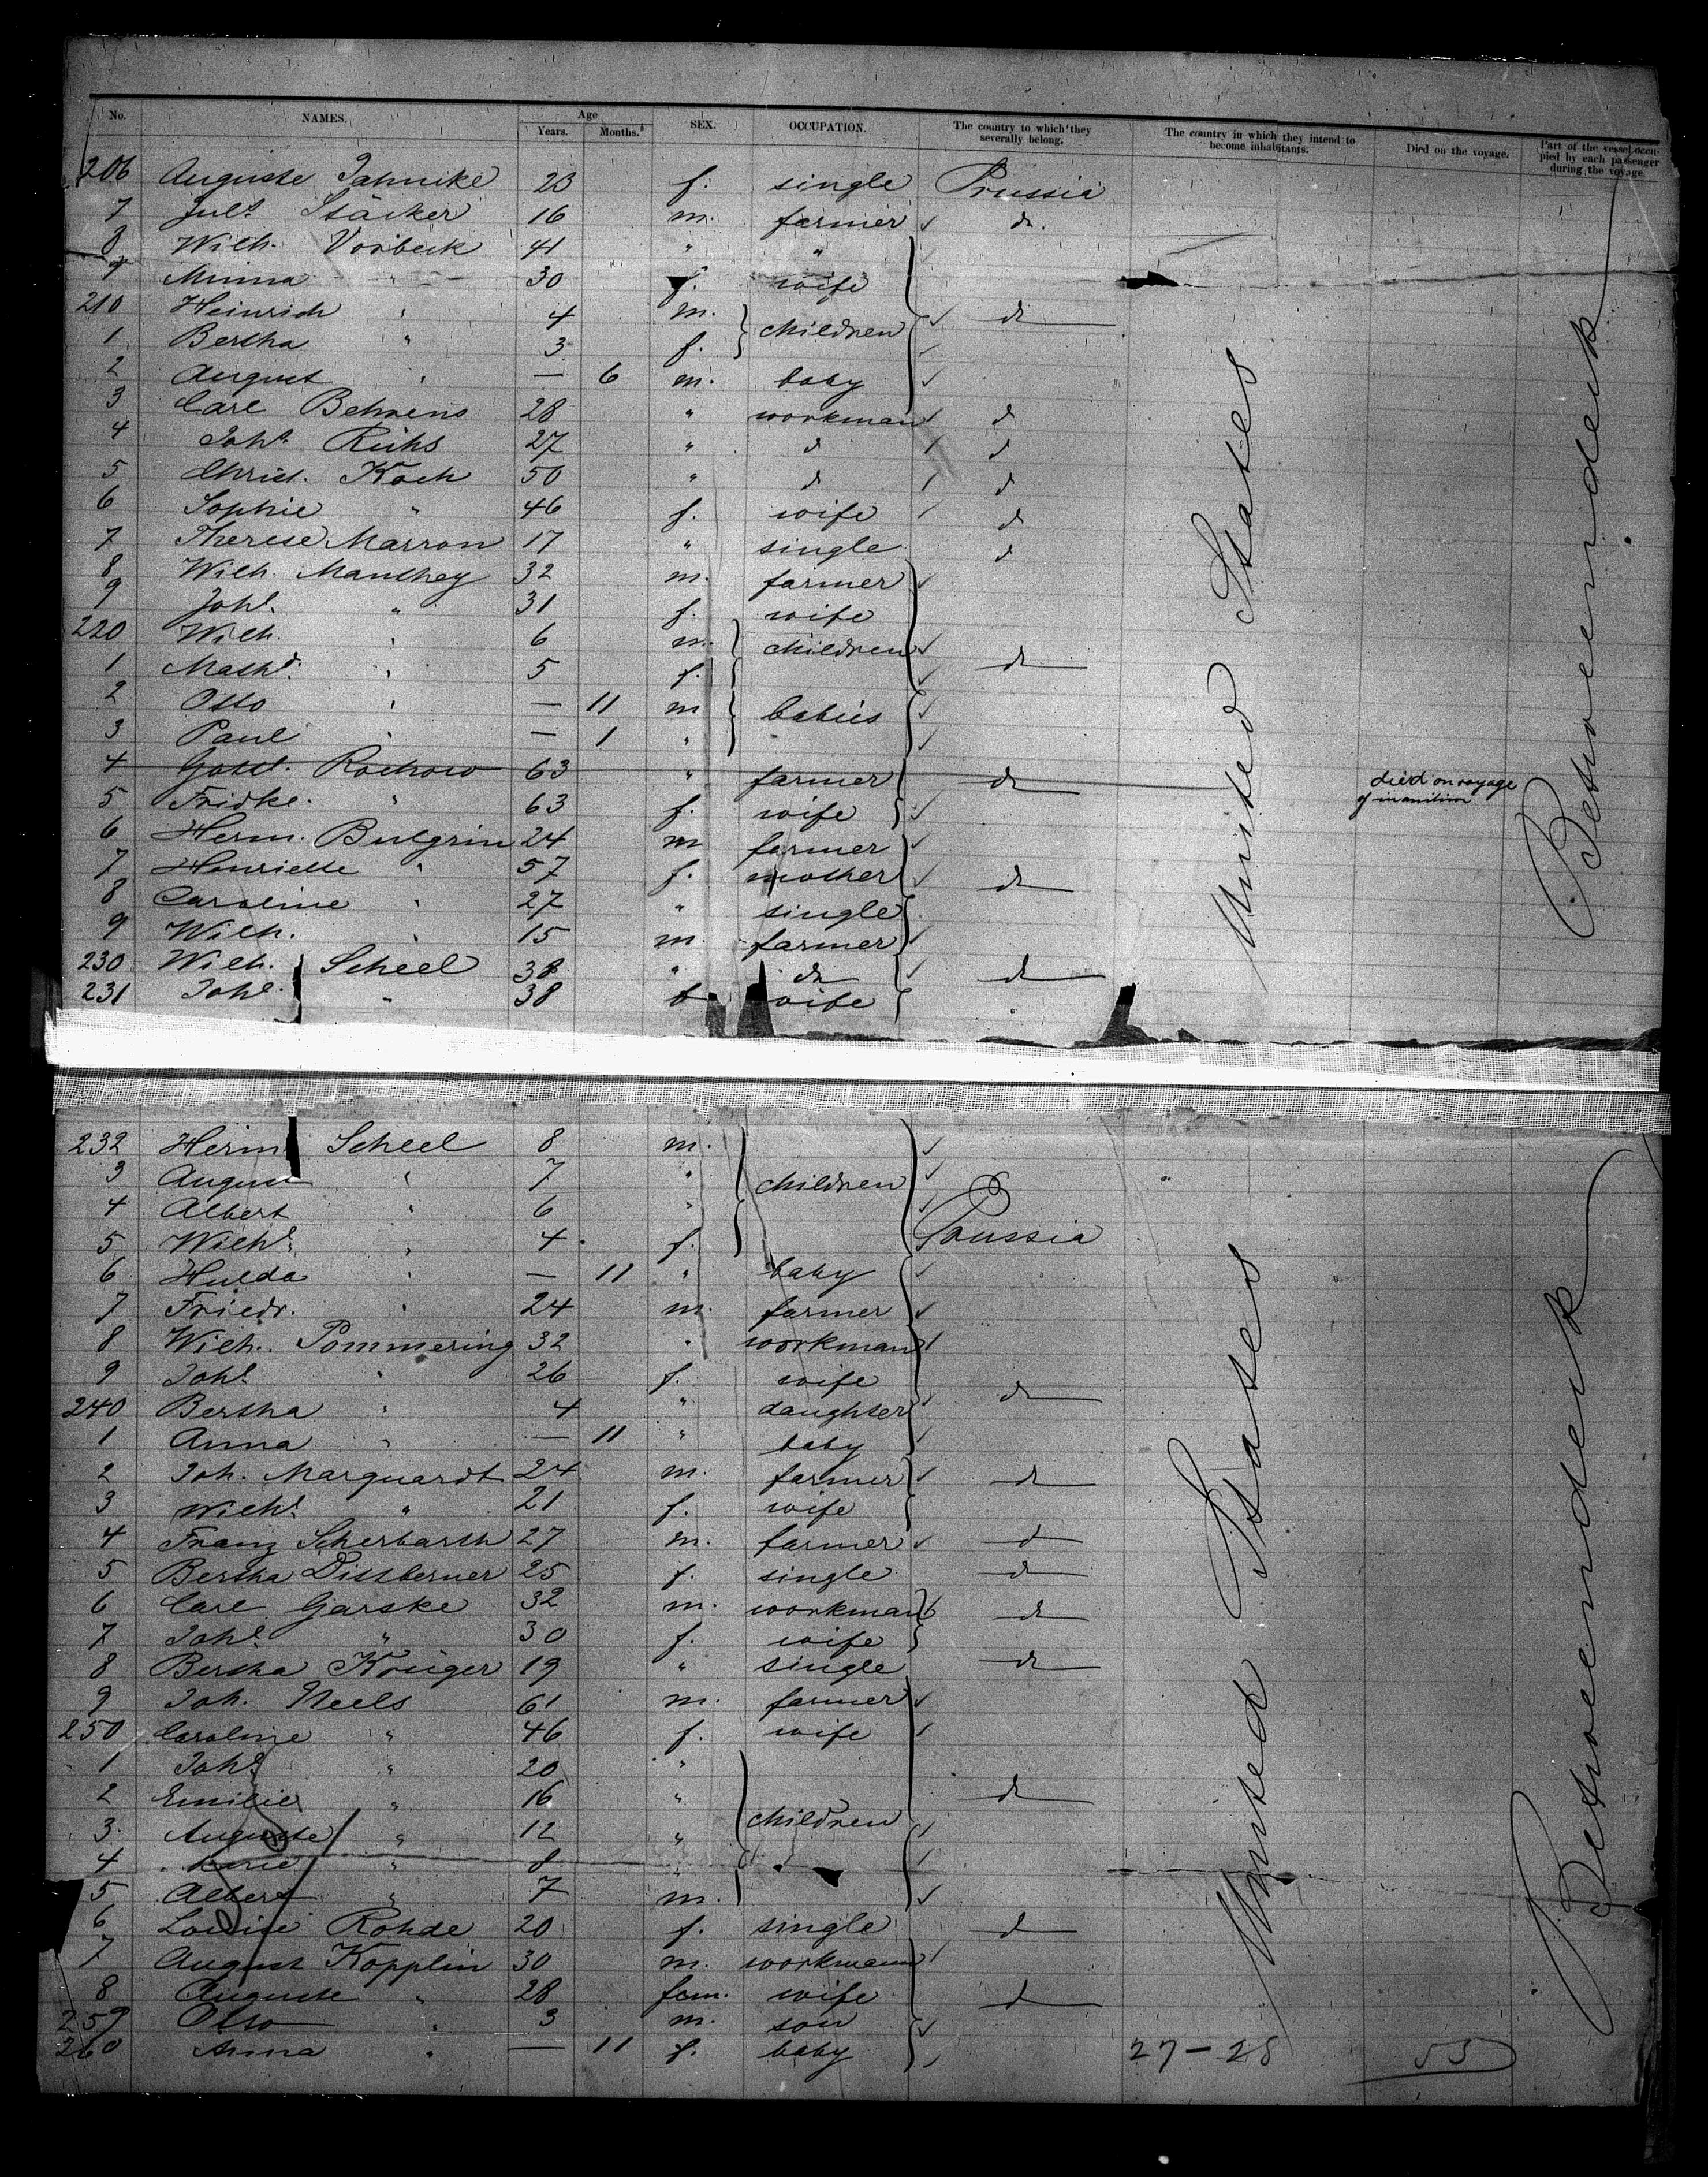 No. NAMES. Age Years. Months. SEX. OCCUPATION. The country to which they severally belong. The country in which they intend to become inhabitants. Died on the voyage. Part of the vessel occupied by each passenger during the voyage.
206 Auguste Jahncke 23 f. single Prussia
7 Juls Stäcker 16 m. farmer do.
8 Wilh. Vorbeck 41 " "
9 Minna " 30 f. wife
210 Heinrich " 4 m. children do
1 Bertha " 3 f.
2 August " — 6 m. baby
3 Carl Behrens 28 " workman d
4 Johs Rühs 27 " d d
5 Christ. Koch 50 " d d
6 Sophie " 46 f. wife d
7 Therese Marron 17 " single d
8 Wilh. Manthey 32 m. farmer
9 Johe. " 31 f. wife
220 Wilh. " 6 m. children do
1 Mathd. " 5 f.
2 Otto " — 11 m babies
3 Paul " — 1 "
4 Gottl. Rochow 63 " farmer do died on voyage of inanition
5 Fridke. " 63 f. wife
6 Herm. Bulgrin 24 m farmer
7 Henriette " 57 f. mother do
8 Caroline " 27 " single
9 Wilh. " 15 m. farmer
230 Wilh. Scheel 38 " do do
231 Johe. " 38 f wife
United States
Betweendeck
232 Herm. Scheel 8 m.
3 August " 7 " children
4 Albert " 6 "
5 Wilhe. " 4 f. Prussia
6 Hulda " — 11 " baby
7 Friedr. " 24 m. farmer
8 Wilh. Pommering 32 " workman
9 Johe. " 26 f. wife do
240 Bertha " 4 " daughter
1 Anna " — 11 " baby
2 Joh. Marquardt 24 m. farmer do
3 Wilhe. " 21 f. wife
4 Franz Scherbarth 27 m. farmer d
5 Bertha Dittberner 25 f. single do
6 Carl Garske 32 m. workman do
7 Johe. " 30 f. wife
8 Bertha Krüger 19 " single do
9 Joh. Neels 61 m. farmer
250 Caroline " 46 f. wife
1 Johe. " 20 "
2 Emilie " 16 " children do
3 Auguste " 12 "
4 Marie " 8 "
5 Albert " 7 m.
6 Louise Rohde 20 f. single d
7 August Kopplin 30 m. workmann
8 Auguste " 28 fem. wife d
259 Otto " 3 m. son
260 Anna " — 11 f. baby 27-28 53
United States
Betweendeck